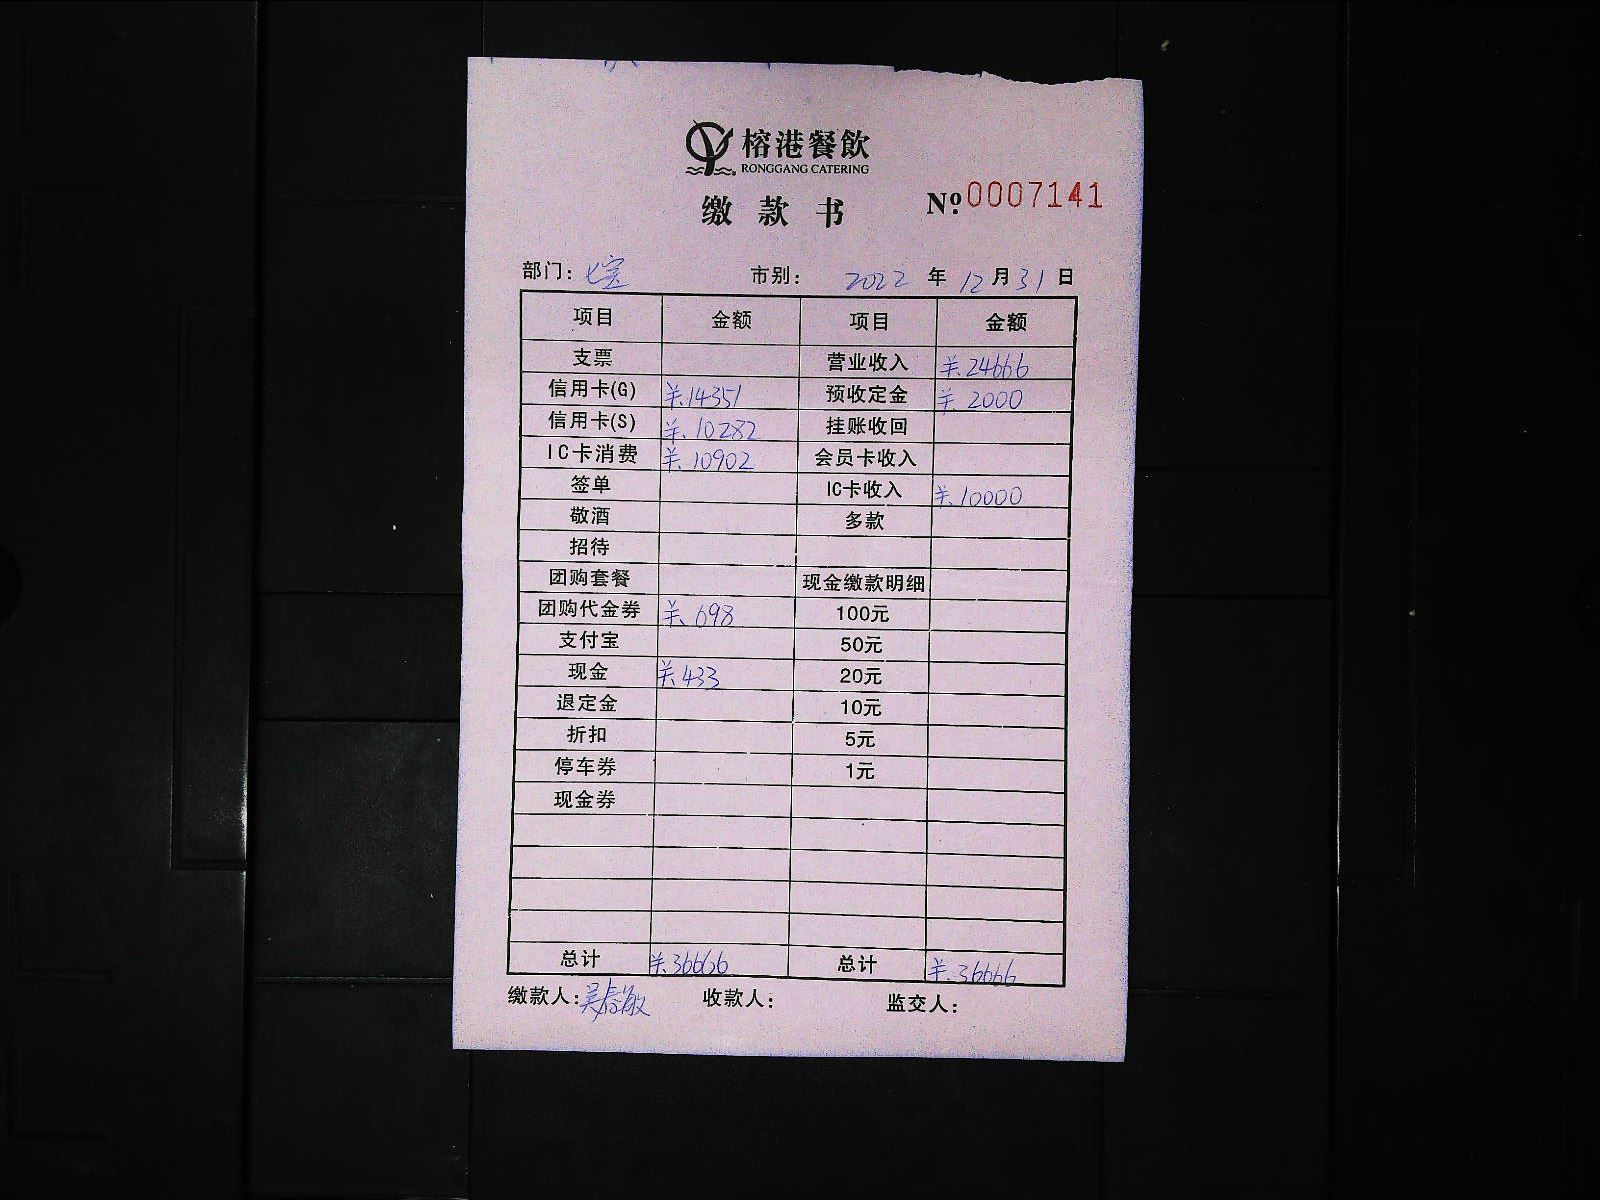 榕港餐飲
RONGGANG CATERING
缴款书 Nº:0007141
部门:七宝 市别: 2022年12月31日
项目 金额 项目 金额
支票 营业收入 ¥.24666
信用卡(G) ¥.14351 预收定金 ¥.2000
信用卡(S) ¥.10282 挂账收回
IC卡消费 ¥.10902 会员卡收入
签单 IC卡收入 ¥.10000
敬酒 多款
招待
团购套餐 现金缴款明细
团购代金券 ¥.698 100元
支付宝 50元
现金 ¥.433 20元
退定金 10元
折扣 5元
停车券 1元
现金券
总计 ¥.36666 总计 ¥.36666
缴款人:吴 敏 收款人: 监交人: